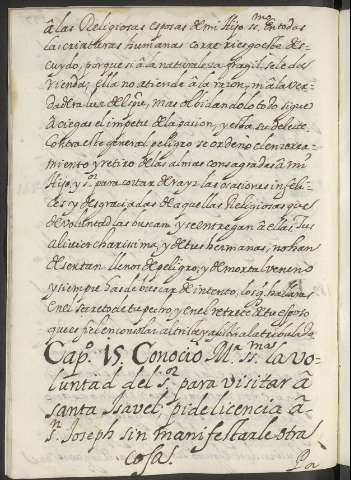 â las Religiosas esposas de mi Hijo ss.mo En todas
las criaturas humanas corre riesgo este des-
cuydo, porque si â la naturaleza fragil se le da
rienda, ella no atiende â la razon, ni â la ver-
dadera luz del spu, mas olbidandolo todo sigue
â ciegas el impetu de la pasion, y esta, su deleite.
Contra este general peligro se ordeno el enzerra-
miento y retiro de las almas consagradas â mi
Hijo y S.r para cortar de rayz las ocasiones infeli-
ces y desgraciadas de aquellas Religiosas que
de voluntad las buscan, y se entregan â ellas. Tus
alivios charissima, y de tus hermanas, no han
de ser tan llenos de peligro, y de mortal veneno
y siempre has de buscar de intento, los q. hallaras
en el secreto de tu pecho, y en el retrete de tu esposo
que es fiel en consolar al triste y asistir al atribulado.
Cap.o 15. Conocio M.a ss.ma la vo-
luntad del S.r para visitar â
santa Isavel, pide licencia â
S.n Joseph sin manifestarle otra
cosa.
Pa